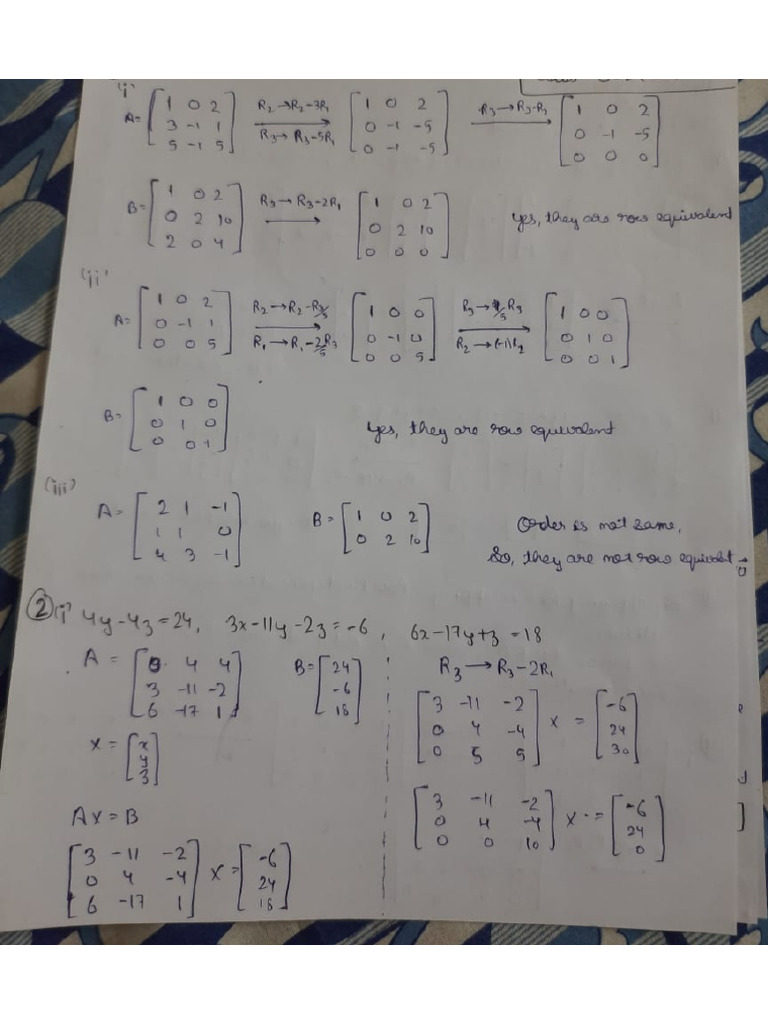 (i)
A= [1 0 2; 3 -1 1; 5 -1 5] R2→R2-3R1, R3→R3-5R1 [1 0 2; 0 -1 -5; 0 -1 -5] R3→R3-R2 [1 0 2; 0 -1 -5; 0 0 0]
B= [1 0 2; 0 2 10; 2 0 4] R3→R3-2R1 [1 0 2; 0 2 10; 0 0 0] Yes, they are row equivalent
(ii)
A= [1 0 2; 0 -1 1; 0 0 5] R2→R2-R3/5, R1→R1-2/5R3 [1 0 0; 0 -1 0; 0 0 5] R3→1/5R3, R2→(-1)R2 [1 0 0; 0 1 0; 0 0 1]
B= [1 0 0; 0 1 0; 0 0 1] Yes, they are row equivalent
(iii)
A= [2 1 -1; 1 1 0; 4 3 -1] B= [1 0 2; 0 2 10] Order is not same,
So, they are not row equivalent
2 (i) 4y-4z=24, 3x-11y-2z=-6, 6x-17y+z=18
A= [0 4 4; 3 -11 -2; 6 -17 1] B= [24; -6; 18]
X= [x; y; z]
AX=B
[3 -11 -2; 0 4 -4; 6 -17 1] X= [-6; 24; 18]
R3→R3-2R1
[3 -11 -2; 0 4 -4; 0 5 5] X = [-6; 24; 30]
[3 -11 -2; 0 4 -4; 0 0 10] X = [-6; 24; 0]